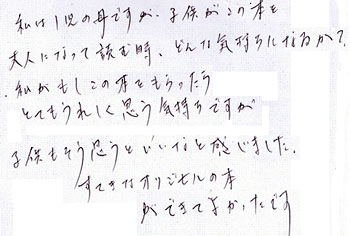 私は1児の母ですが、子供がこの本を
大人になって読む時、どんな気持ちになるか?
私がもしこの本をもらったら
とてもうれしく思う気持ちですが
子供もそう思うといいなと感じました。
すてきなオリジナルの本
ができてよかったです